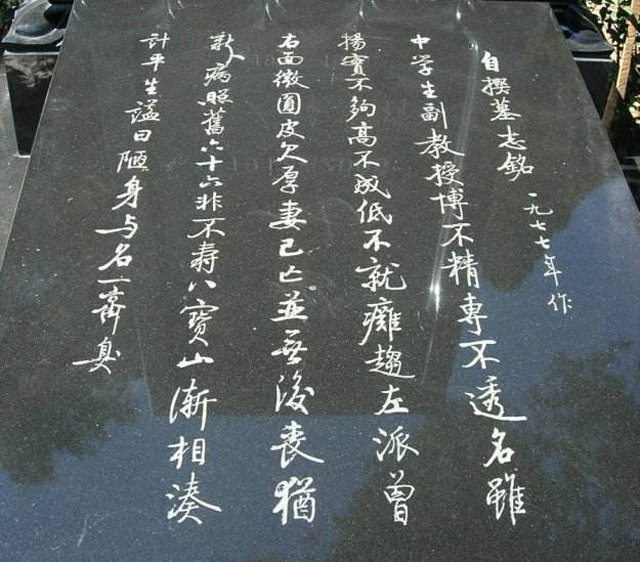 自撰墓志銘 一九七七年作
中学生副教授博不精專不透名雖
揚實不夠高不成低不就癱趨左派曾
右面微圓皮欠厚妻已亡並无後喪猶
新病照舊六十六非不壽八寶山漸相湊
計平生謚曰陋身与名一齊臭